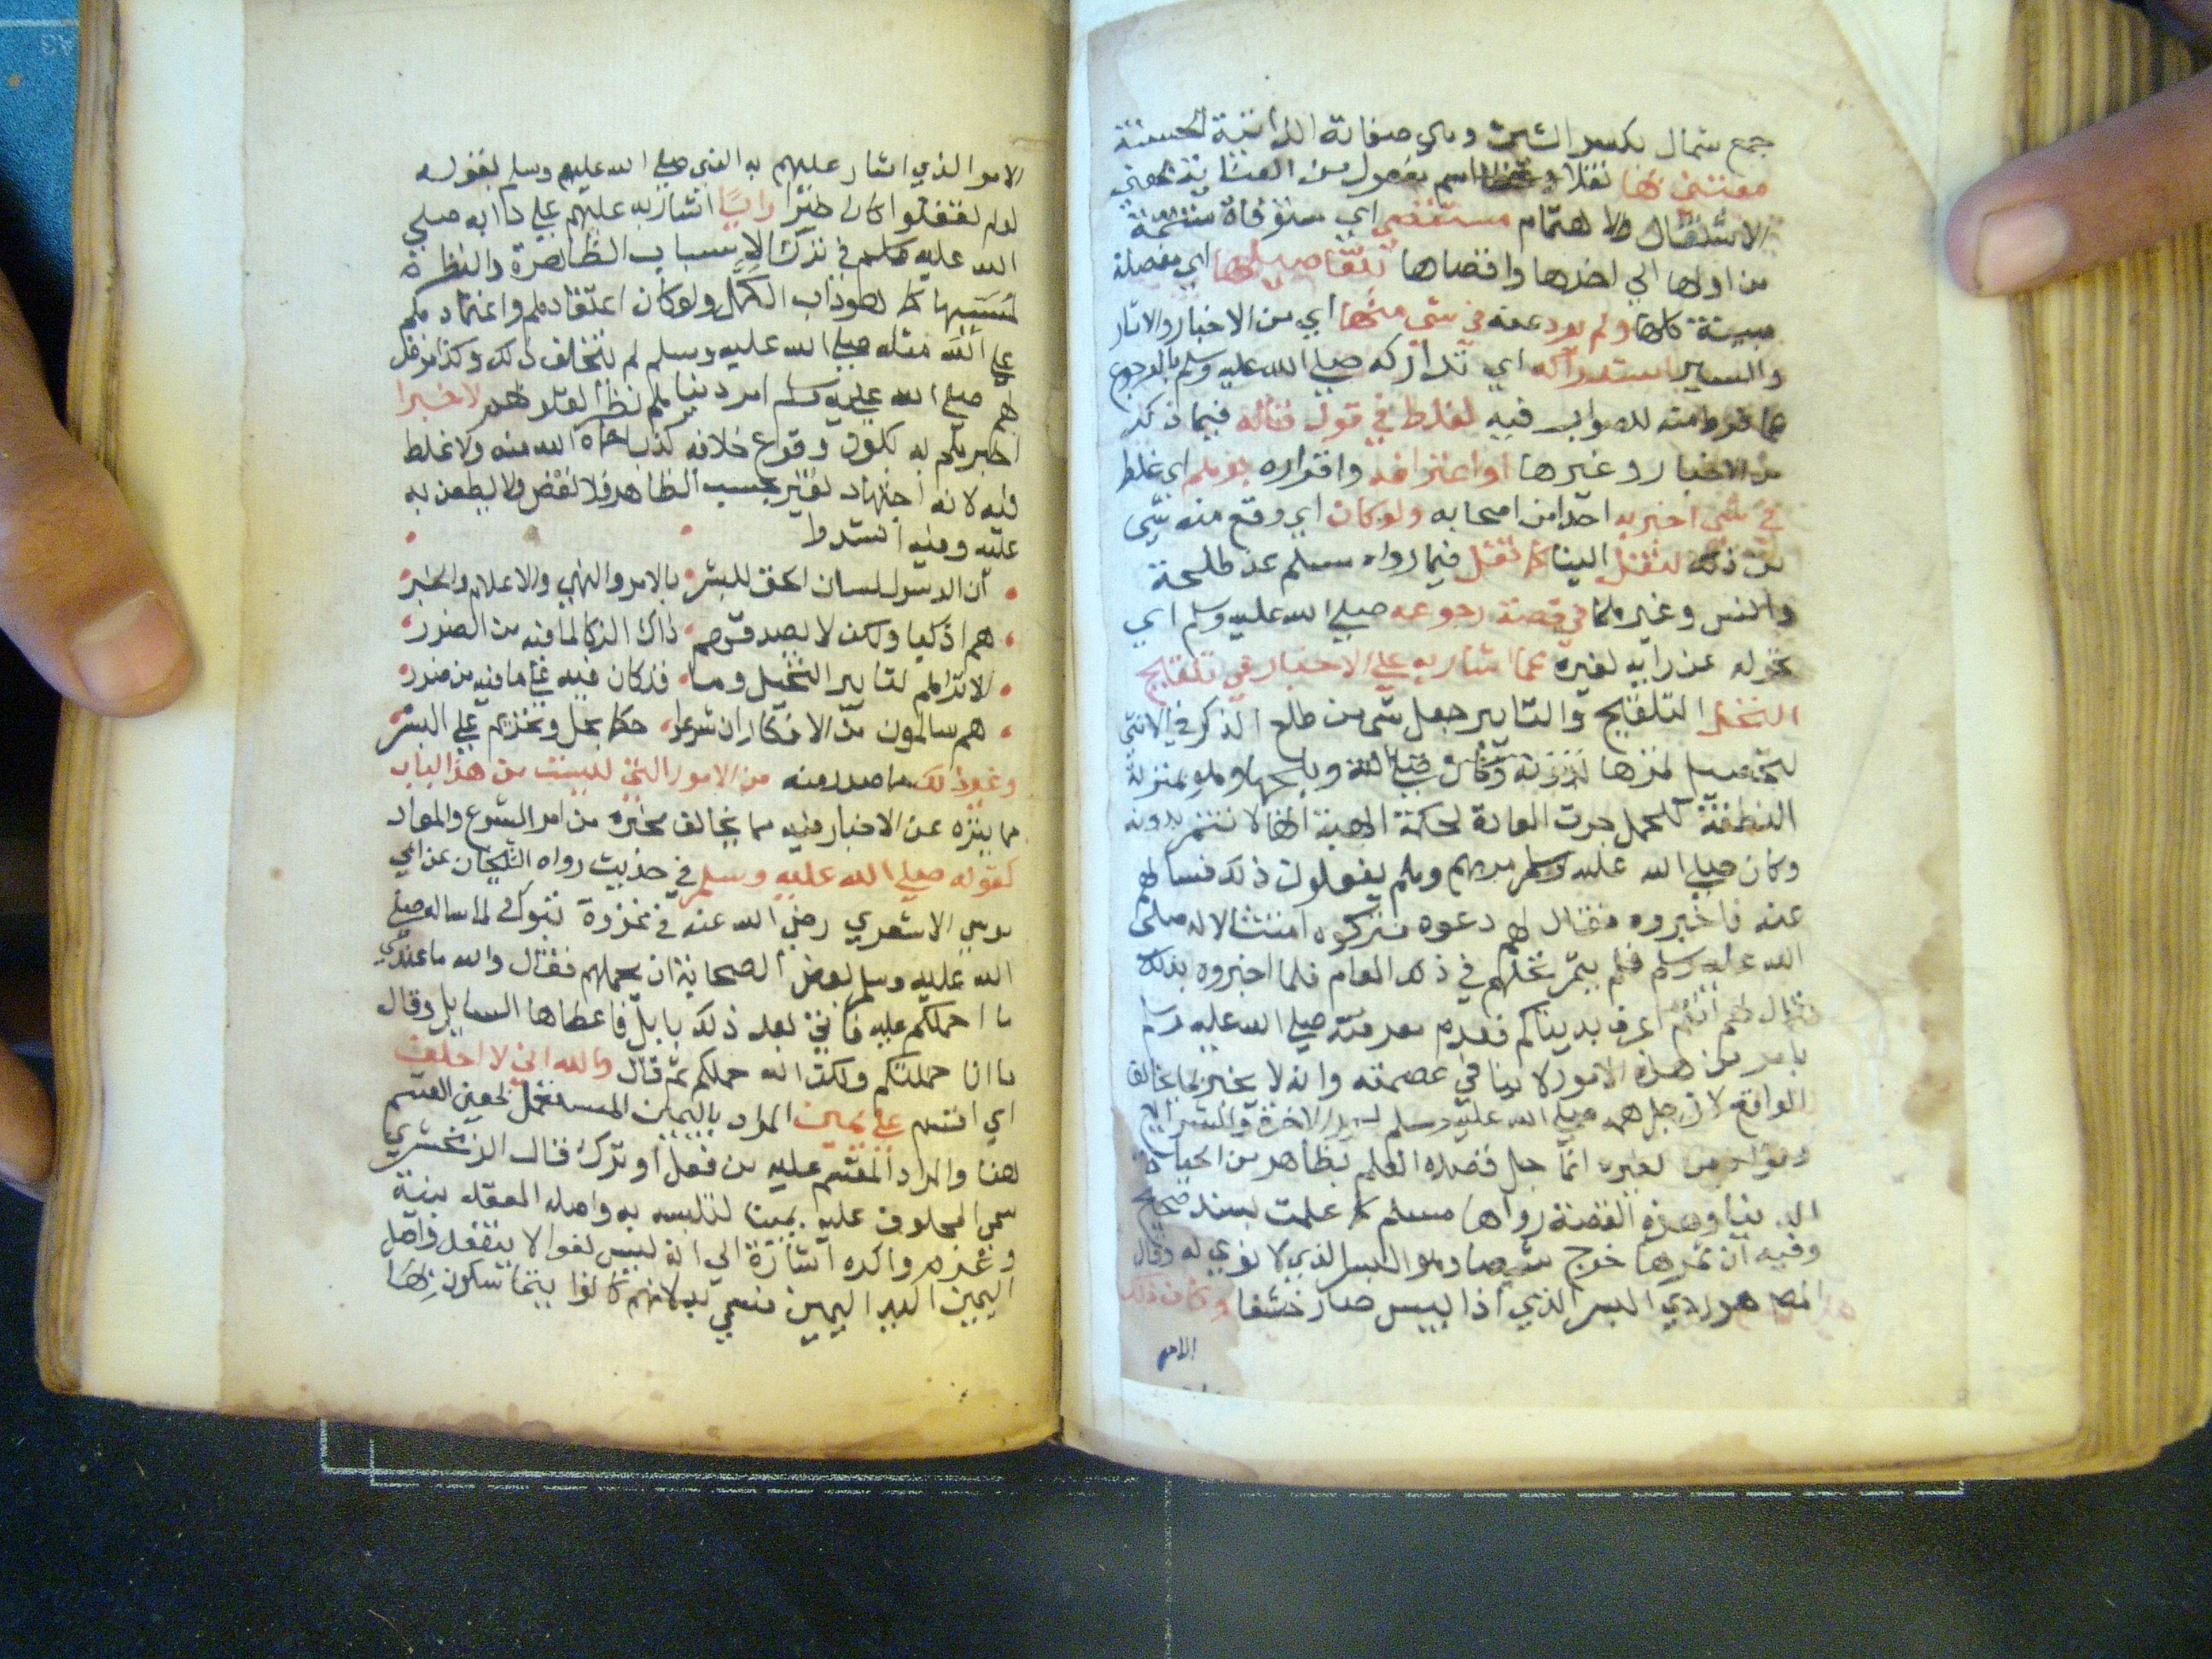 جمع شمال بكسر الشين وهي صفاته الذاتية الحسنة
معتنى بها نقلا اسم مفعول من العناية بمعنى
الاشتغال والاهتمام مستقصى اي مستوفاة متتبعة
من اولها الي اخرها واقصاها تفاصيلها اي مفصلة
مبينة كلها ولم يرد عنه في شي منها اي من الاخبار والاثار
والسير استدراكه اي تداركه صلي الله عليه وسلم بالرجوع
عما فرط منه للصواب فيه لغلط في قول قاله فيما ذكر
من الاخبار وغيرها او اعترافه واقراره بوهم اي غلط
في شي اخبر به احدا من اصحابه ولو كان اي وقع منه شي
من ذلك لنقل الينا كما نقل فيما رواه مسلم عن طلحة
وانس وغيرهما في قصة رجوعه صلي الله عليه وسلم اي
عن رايه لغيره عما اشار به علي الانصار في تلقيح
النخل التلقيح والتابير جعل شي من طلع الذكر في الانثى
وهو بمنزلة
النطفة للحمل جرت العادة لحكمة الهية انها لا تثمر بدونه
وكان صلي الله عليه وسلم مر بهم وهم يفعلون ذلك فسالهم
عنه فاخبروه فقال لهم دعوه فتركوه امتثالا له صلى
الله عليه وسلم فلم يثمر نخلهم في ذلك العام فلما اخبروه بذلك
فقال لهم انتم اعرف بدنياكم فعدم معرفته صلي الله عليه وسلم
بامر من هذه الامور لا ينافي عصمته وانه لا يخبر بما يخالف
الواقع لان جل همه صلي الله عليه وسلم الاخرة والشرايع
لغيره انما جل قصده العلم بظاهر من الحياة
الدنيا وهذه القصة رواها مسلم كما علمت بسند صحيح
وفيه ان تمرها خرج شيصا وهو البسر الذي لا نوي له وقال
هو ردي البسر الذي اذا يبس صار حشفا وكان ذلك
الامر
الامر الذي اشار عليهم به النبي صلي الله عليه وسلم بقوله
لو لم تفعلوا كان خيرا رايا اشار به عليهم علي دابه صلي
الله عليه وسلم في ترك الاسباب الظاهرة والنظر
لمسببها كما هو داب الكمل ولو كان اعتقادهم واعتمادهم
علي الله مثله صلي الله عليه وسلم لم يتخلف ذلك
صلي الله عليه وسلم امر دنياهم نظرا لقلوبهم لا خبرا
اخبرهم به لكون وقوع خلافه كذبا حماه الله منه ولا غلط
فيه لانه اجتهاد تغير بحسب الظاهر فلا نقص ولا يطعن به
عليه وفيه انشدوا
ان الرسول لسان الحق للبشر بالامر والنهي والاعلام والخبر
هم اذكيا ولكن لا يصدقهم ذاك الذكا لما فيه من الضرر
الا تراهم لتابير النخيل وما قد كان فيه علي ما فيه من ضرر
هم سالمون من الافكار ان شرعوا حكما بحل وتحريم علي البشر
وغير ذلك ما صدر منه من الامور التي ليست من هذا الباب
مما ينزه عن الاخبار فيه بما يخالف مخبره من امر الشرع والمعاد
كقوله صلي الله عليه وسلم في حديث رواه الشيخان عن ابي
موسي الاشعري رضي الله عنه في غزوة تبوك لما ساله صلي
الله عليه وسلم بعض الصحابة ان يحملهم فقال والله ما عندي
ما احملكم عليه فاتي بعد ذلك بابل فاعطاها السايل وقال
ما انا حملتكم ولكن الله حملكم ثم قال والله اني لا احلف
اي اقسم علي يمين المراد باليمين المستعمل بمعنى القسم
هنا والمراد المقسم عليه من فعل او ترك قال الزمخشري
سمي المحلوف عليه يمينا لتلبسه به واصله العقد بنية
وعزم واكده اشارة الي انه ليس لغوا لا ينعقد واصل
اليمين اليد اليمين فسمي به لانهم كانوا يتماسكون بها